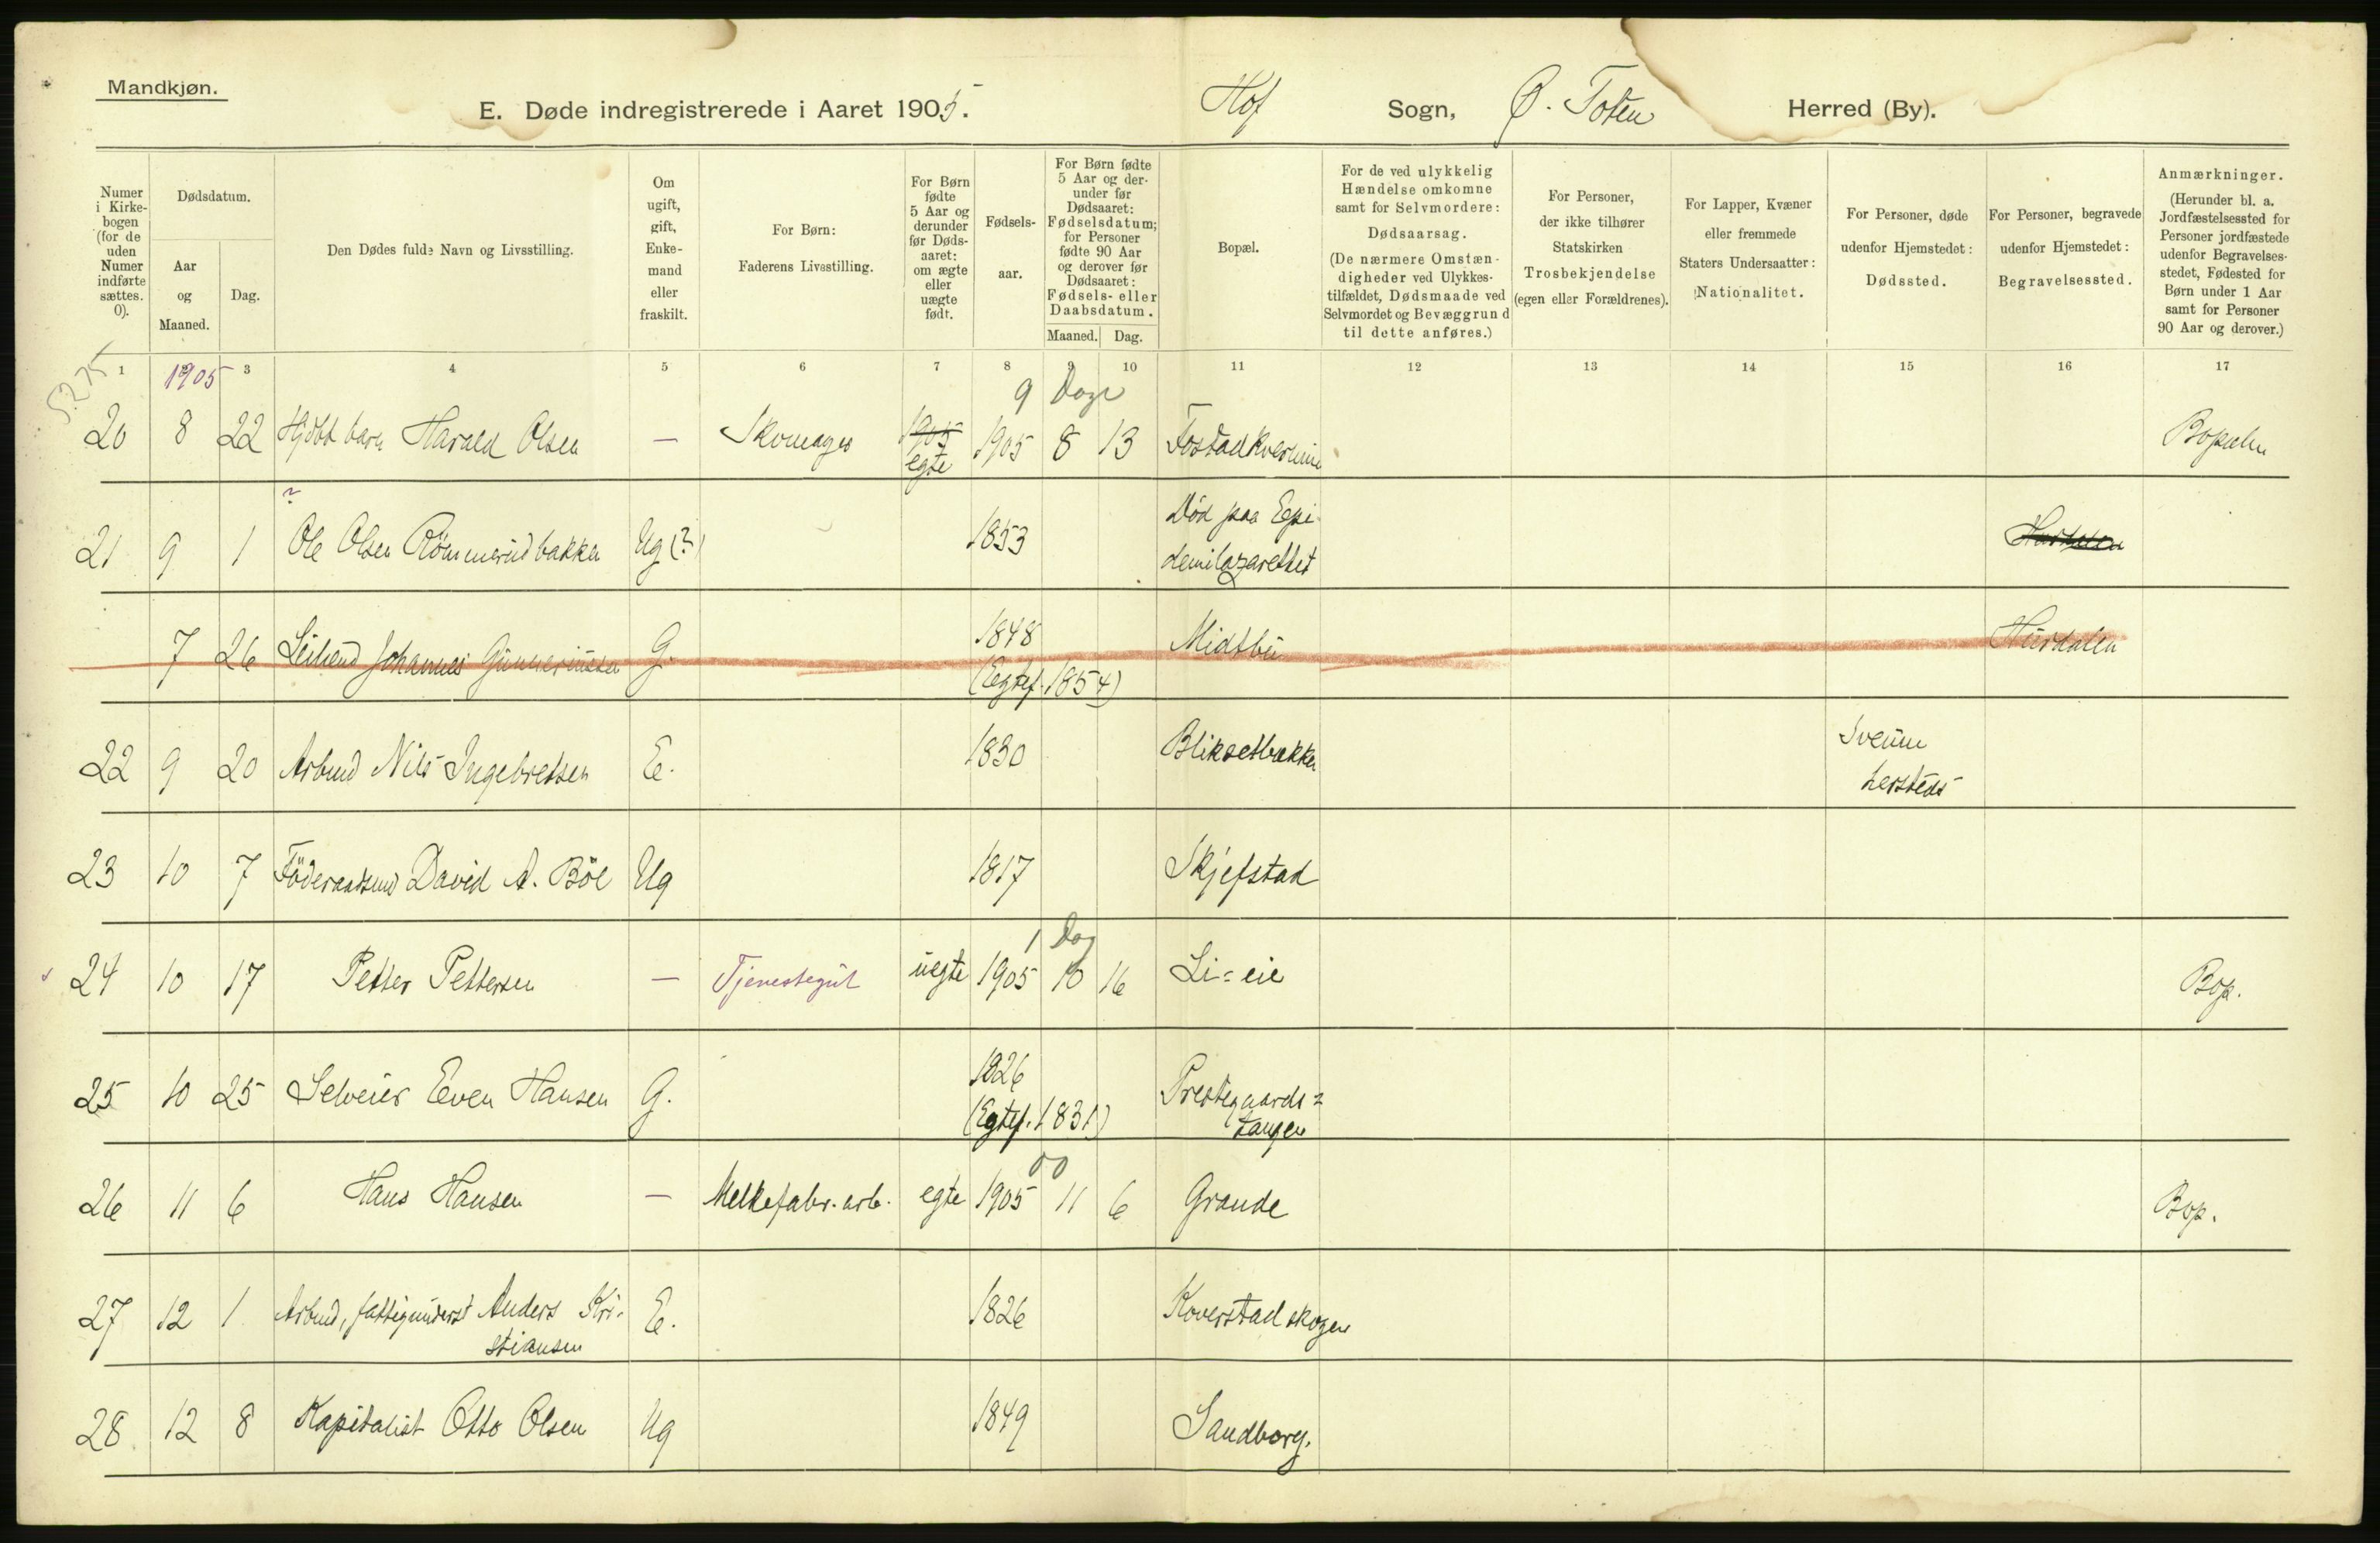 Mandkjøn.
E. Døde indregistrerede i Aaret 1905. Hof Sogn, Ø. Toten Herred (By).
Numer i Kirke-bogen (for de uden Numer indførte sættes. 0).
Dødsdatum.
Aar og Maaned.
Dag.
Den Dødes fulde Navn og Livsstilling.
Om ugift, gift, Enke-mand eller fraskilt.
For Børn: Faderens Livsstilling.
For Børn fødte 5 Aar og derunder før Døds-aaret: om ægte eller uægte født.
Fødsels-aar.
For Børn fødte 5 Aar og der-under før Dødsaaret: Fødselsdatum; for Personer fødte 90 Aar og derover før Dødsaaret: Fødsels- eller Daabsdatum.
Maaned. Dag.
Bopæl.
For de ved ulykkelig Hændelse omkomne samt for Selvmordere: Dødsaarsag. (De nærmere Omstæn-digheder ved Ulykkes-tilfældet, Dødsmaade ved Selvmordet og Bevæggrund til dette anføres.)
For Personer, der ikke tilhører Statskirken Trosbekjendelse (egen eller Forældrenes).
For Lapper, Kvæner eller fremmede Staters Undersaatter: Nationalitet.
For Personer, døde udenfor Hjemstedet: Dødssted.
For Personer, begravede udenfor Hjemstedet: Begravelsessted.
Anmærkninger. (Herunder bl. a. Jordfæstelsessted for Personer jordfæstede udenfor Begravelses-stedet, Fødested for Børn under 1 Aar samt for Personer 90 Aar og derover.)
1 2 3 4 5 6 7 8 9 10 11 12 13 14 15 16 17
1905
9 Dage
20 8 22 Hjdbt barn Harald Olsen — Skomager 1905 egte 1905 8 13 Fostadkvernine Bopælen
?
21 9 1 Ole Olsen Rømmerudbakken Ug (?) 1853 Død paa Epi-
demilazarettet
7 26 Leilend Johannes Gunneriussen G. 1848 Midtbu Hurdalen
(Egtef. 1854)
22 9 20 Arbmd Nils Ingebretsen E. 1830 Bliksetbakken Sveum
lersteds
23 10 7 Föderaadsmd David A. Böe Ug 1817 Skjefstad
1 Dag
24 10 17 Petter Pettersen — Tjenestegut uegte 1905 10 16 Li=eie Bop.
25 10 25 Selveier Even Hansen G. 1826 Prestegaards=
(Egtef. 1831) tangen
00
26 11 6 Hans Hansen — Melkefabr. arb. egte 1905 11 6 Grande Bop.
27 12 1 Arbmd, fattigunderst Anders Kri- E. 1826 Koverstadskogen
stiansen
28 12 8 Kapitalist Otto Olsen Ug 1849 Sandborg.